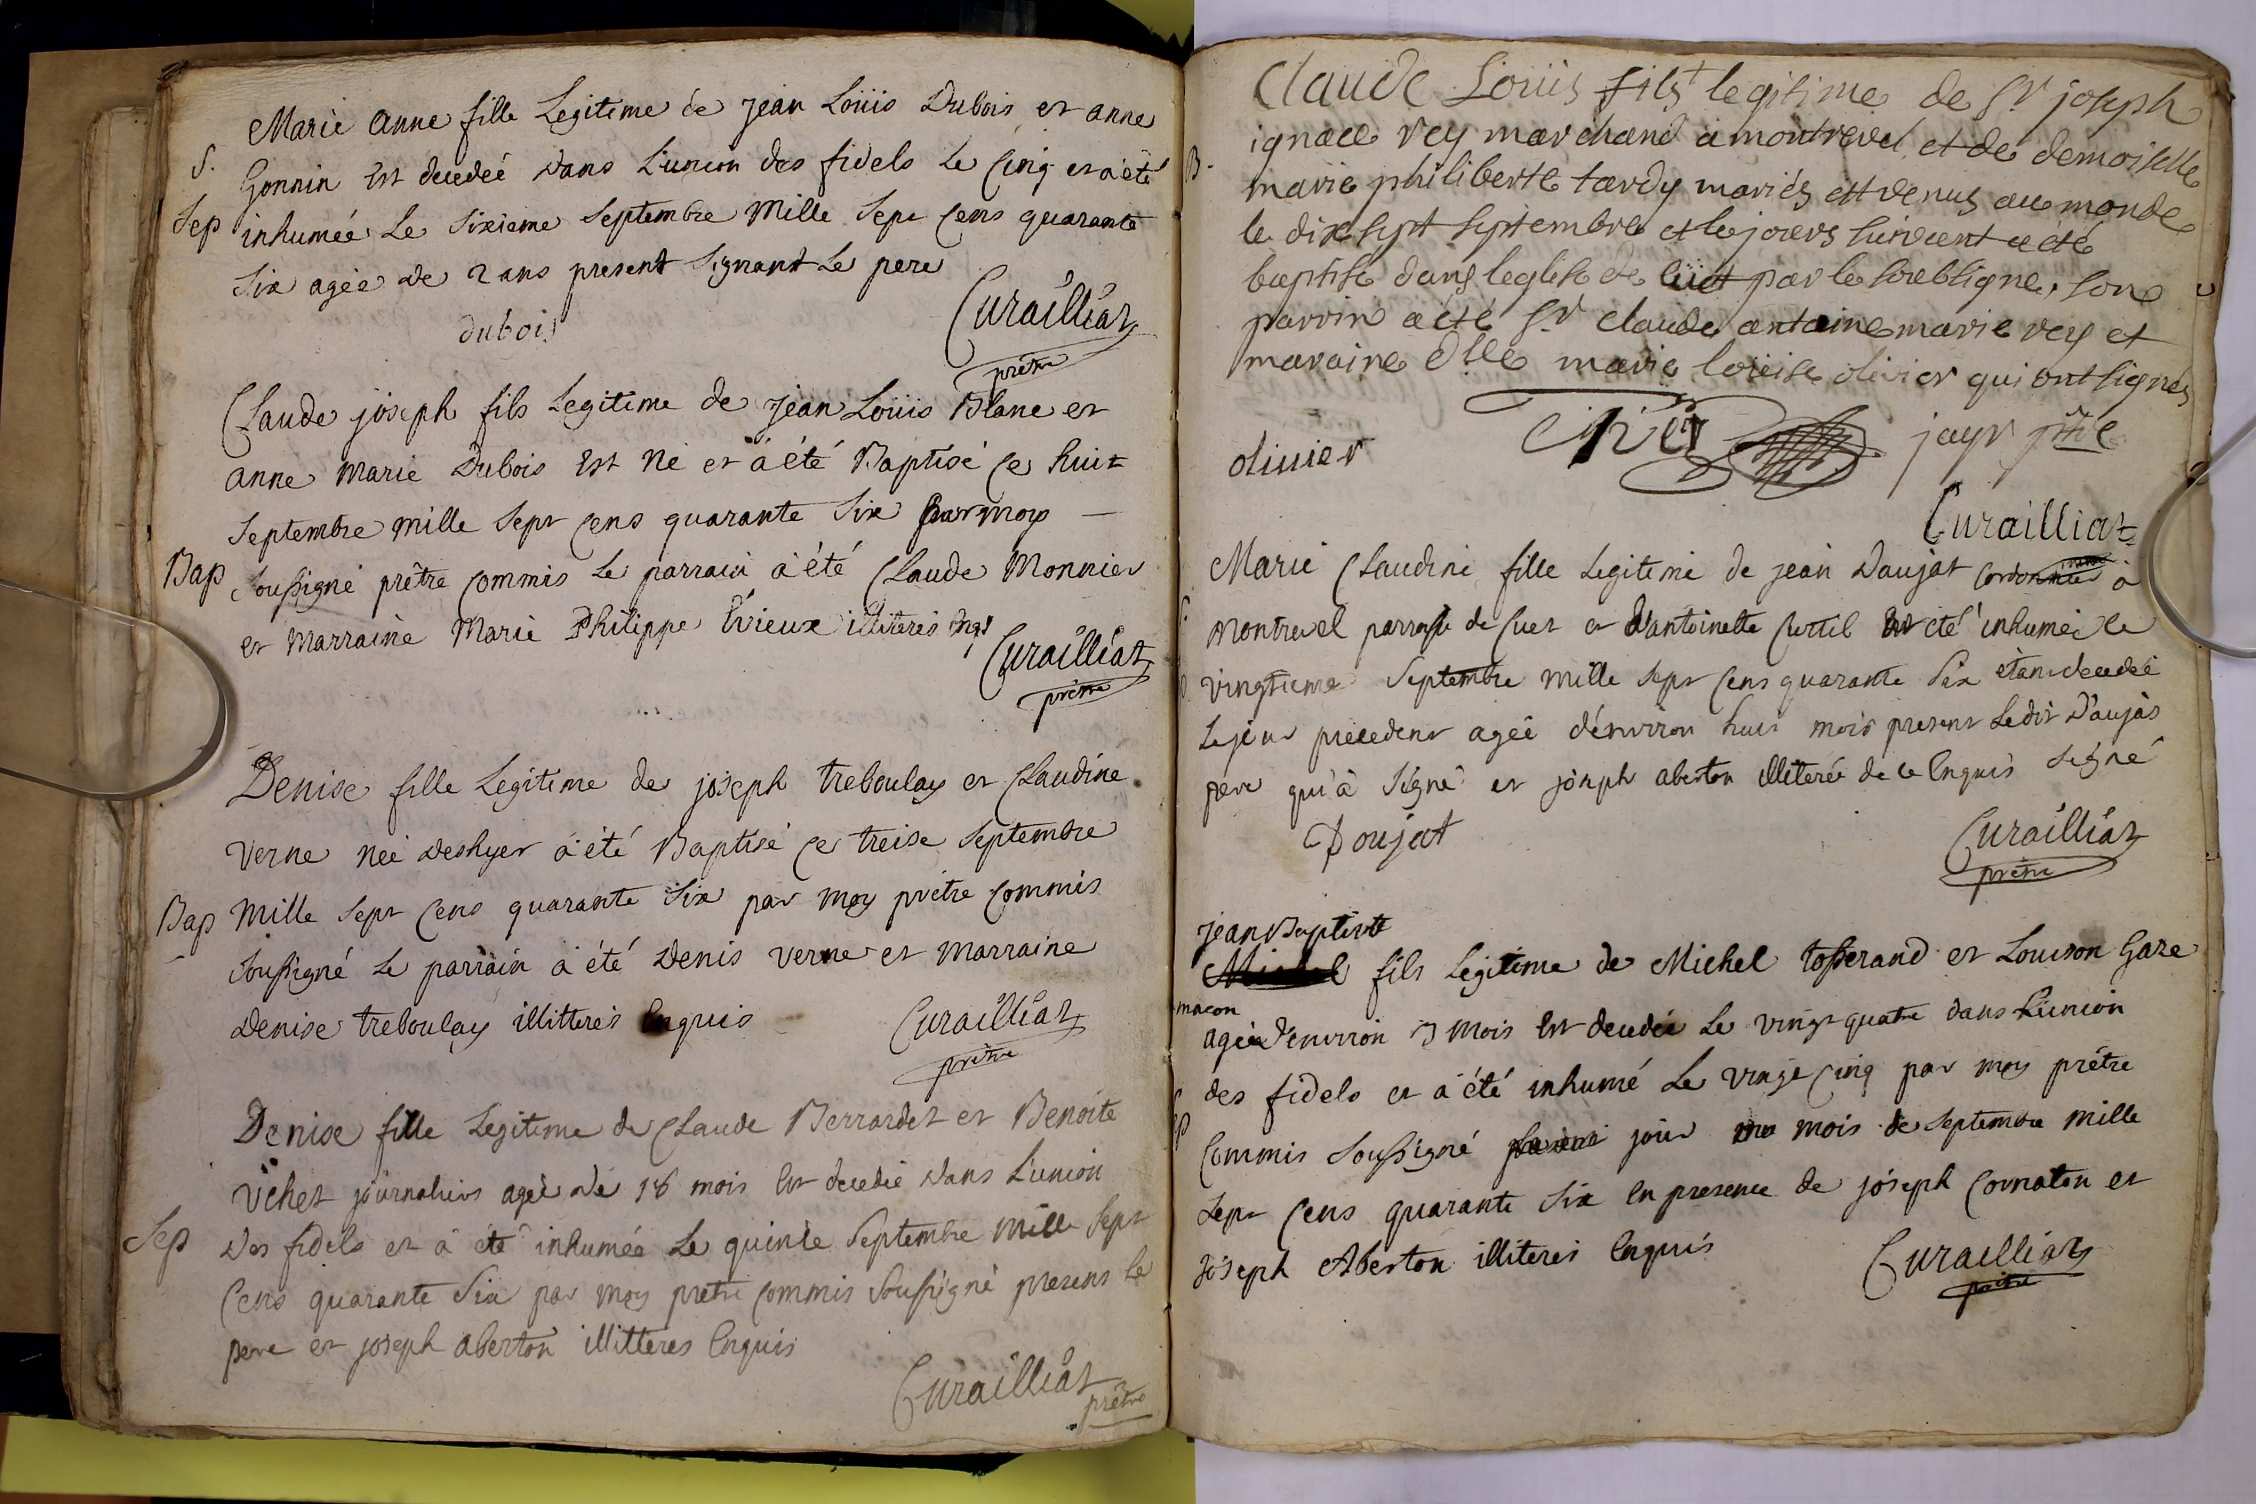 Marie anne fille Legitime de jean Loüis Dubois et anne
S. Gonnin est decedeé dans L'union des fidels Le Cinq et a été
Sep inhumeé Le Sixieme Septembre Mille Sept Cens quarante
Six ageé de 2 ans present Signant Le pere
dubois
Curailliat
prêtre
Claude joseph fils Legitime de jean Loüis Blanc et
anne Marie Dubois est né et a été Baptisé Ce huit
Septembre mille Sept Cens quarante Six par moy
Bap Soussigné prêtre Commis Le parrain a été Claude Monnier
et Marraine Marie Philippe Vieux illiteres Enqs
Curailliat
prêtre
Denise fille Legitime de joseph treboulay et Claudine
Verne neé deshyer a été Baptisé Ce treise Septembre
Bap Mille Sept Cens quarante Six par moy prêtre Commis
Soussigné Le parrain a été Denis Verne et Marraine
Denise treboulay illitterés Enquis
Curailliat
prêtre
Denise fille Legitime de Claude Berrardet et Benoite
Vchet journaliers ageé de 18 mois Est decedeé dans L'union
Sep des fidels et a été inhumée Le quinse Septembre Mille Sept
Cens quarante Six par moy prêtre Commis Soussigné presens Le
pere et joseph aberton illitteres Enquis
Curailliat
prêtre
Claude Loüis fils legitime de Sr joseph
ignace rey marchand a montrevel et de demoiselle
B. marie philiberte tardy mariés est venus au monde
le dix sept septembre et le jours suivent a eté
baptisé dans leglise de cuet par le soubsigne, son
parrin a été Sr claude antoine marie rey et
maraine dlle marie loüise olivier qui ont signés
olivier Rey jayr ptre
Curailliat
Marie Claudine fille Legitime de jean Daujat Cordonnier à
Montrevel parroisse de Cuet et d'antoinette Curtil été inhumeé le
vingtieme Septembre Mille Sept Cens quarante Six étant decedeé
Le jour precedent ageé d'environ huit mois present Ledit D'aujas
pere qui a Signé et joseph aberton illiteré de ce Enquis Signé
Doujat
Curailliat
prêtre
jean Baptiste
Michel fils Legitime de Michel tosserand et Louison Gaze
macon
ageé d'environ 3 mois Est decedée Le vingt quatre dans L'union
des fidels et a été inhumé Le vingt Cinq par moy prêtre
Commis Soussigné jour du mois de Septembre Mille
Sept Cens quarante Six En presence de joseph Cornaton et
joseph Aberton illiterés Enquis
Curailliat
prêtre